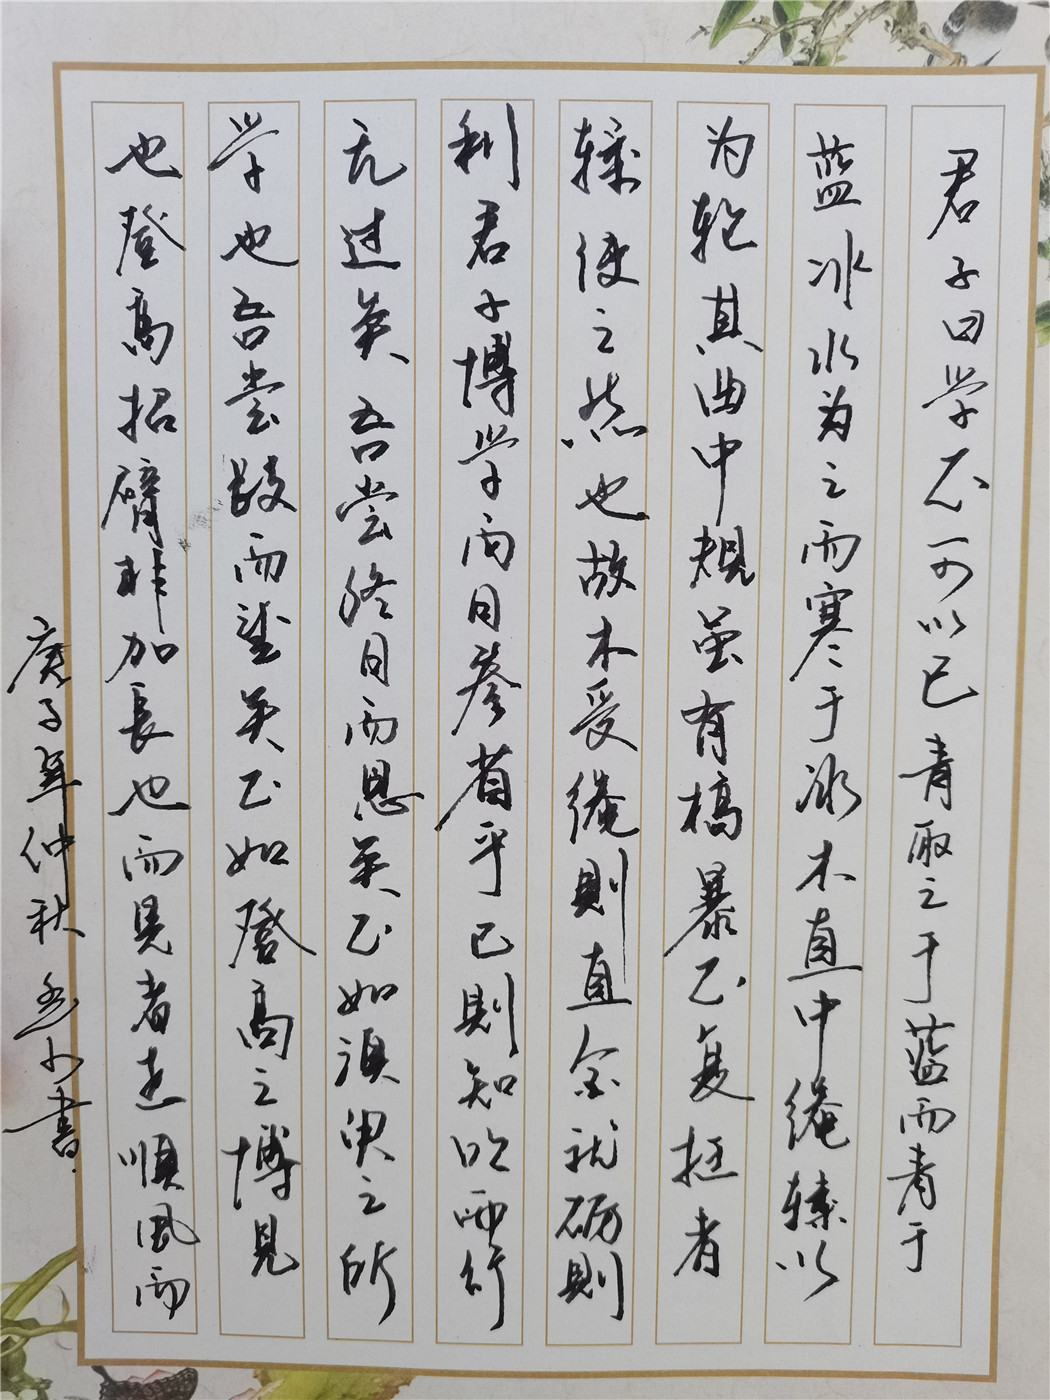 君子曰学不可以已青取之于蓝而青于
蓝冰水为之而寒于冰木直中绳輮以
为轮其曲中规虽有槁暴不复挺者
輮使之然也故木受绳则直金就砺则
利君子博学而日参省乎己则知明而行
无过矣吾尝终日而思矣不如须臾之所
学也吾尝跂而望矣不如登高之博见
也登高招臂非加長也而見者远順風而
庚子年仲秋 书